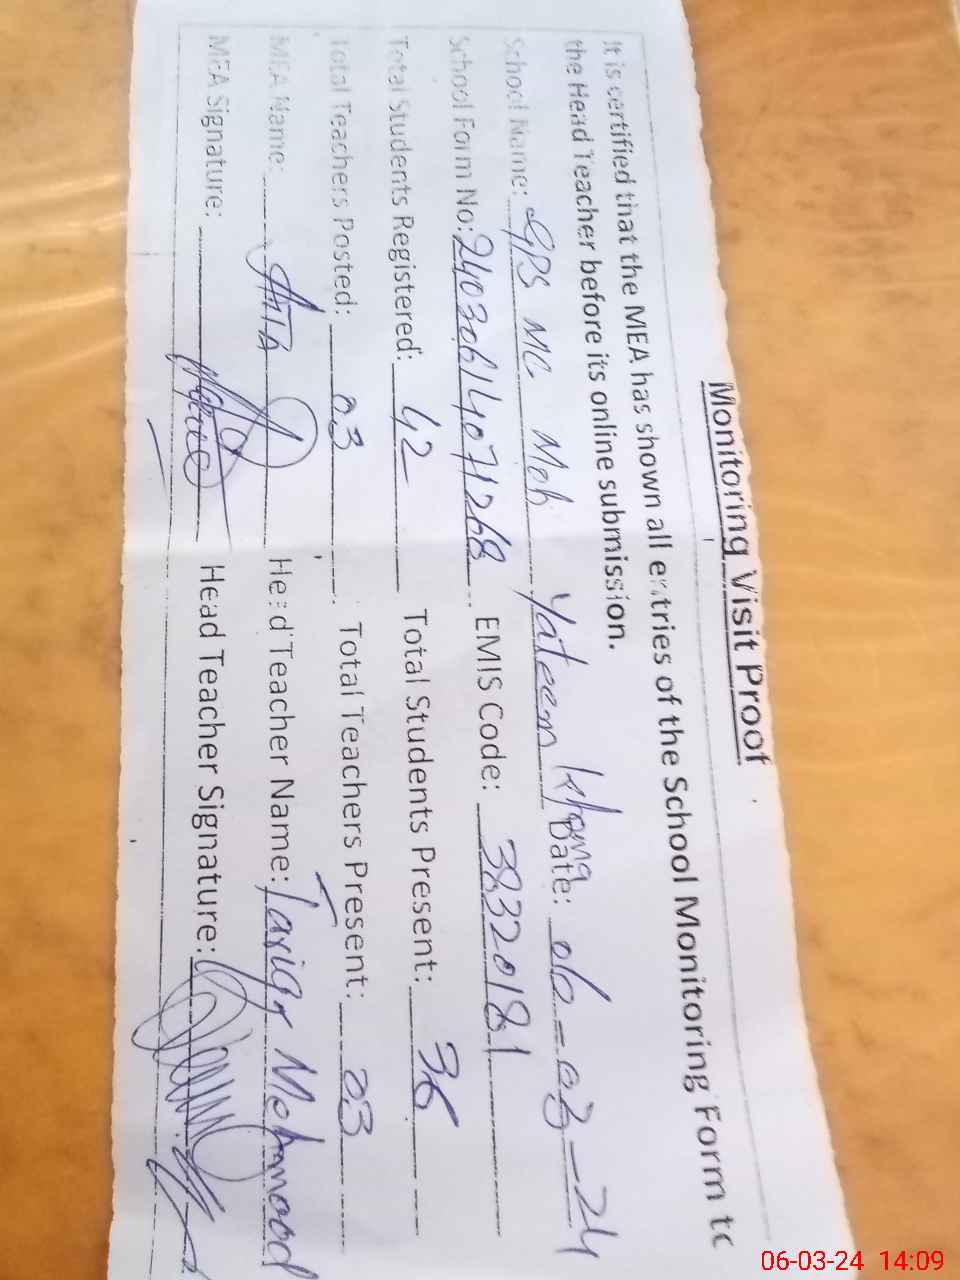 Monitoring Visit Proof
It is certified that the MEA has shown all entries of the School Monitoring Form to
the Head Teacher before its online submission.
School Name: GPS MC Moh Yateem Khana Date: 06-03-24
School Form No: 24030614071268 EMIS Code: 38320181
Total Students Registered: 42 Total Students Present: 36
Total Teachers Posted: 03 Total Teachers Present: 03
MEA Name: Head Teacher Name: Tariq Mehmood
MEA Signature: Head Teacher Signature:
06-03-24 14:09